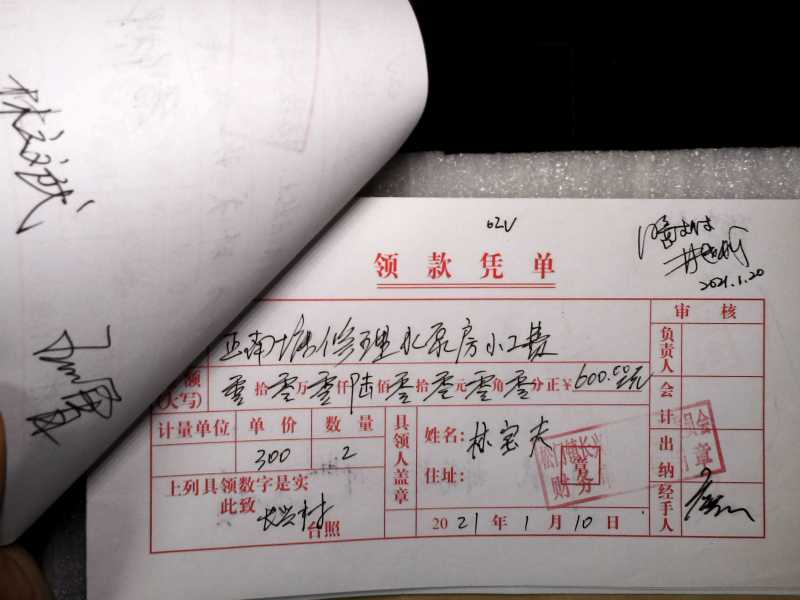 62V
2021.1.20
领款凭单
审核
正南塘修理水泵房小工费
额
(大写)
零拾零万零仟陆佰零拾零元零角零分正¥600.00元
负责人
计量单位 单价 数量
300 2
具领人盖章
姓名:林宝夫
住址:
会计
出纳
经手人
上列具领数字是实
此致
长兴村
台照
2021年1月10日
财务
章